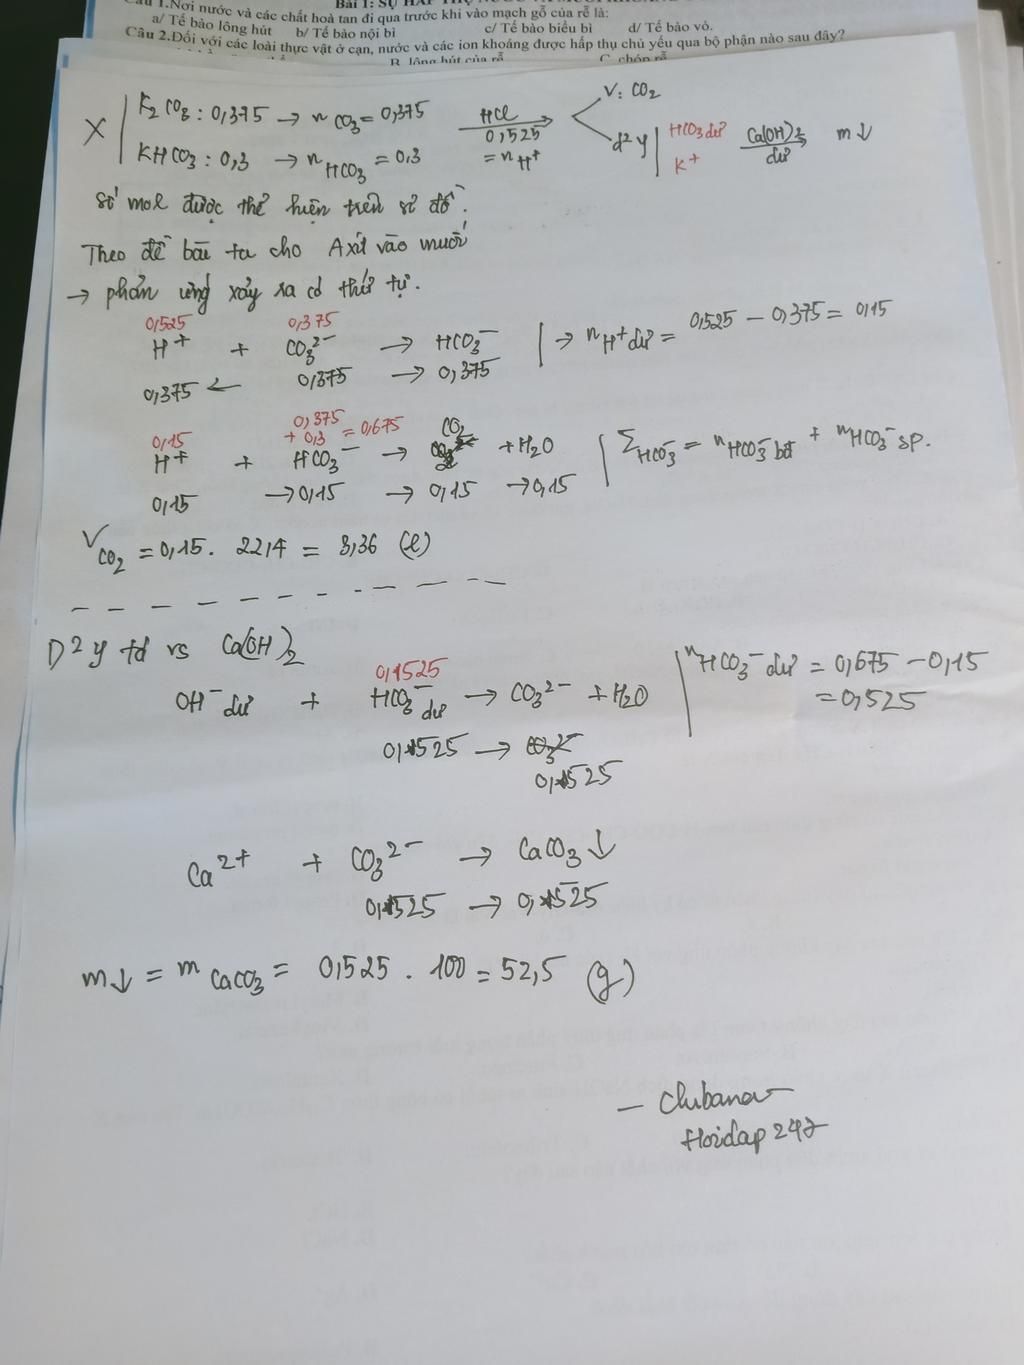 Câu 1.Nơi nước và các chất hoà tan đi qua trước khi vào mạch gỗ của rễ là:
a/ Tế bào lông hút b/ Tế bào nội bì c/ Tế bào biểu bì d/ Tế bào vỏ.
Câu 2.Đối với các loài thực vật ở cạn, nước và các ion khoáng được hấp thụ chủ yếu qua bộ phận nào sau đây?
X | K2CO3 : 0,375 → nCO3 = 0,375 HCl V: CO2
KHCO3 : 0,3 → nHCO3 = 0,3 0,525 = nH+ d² y | HCO3 dư K+ Ca(OH)2 dư m↓
số mol được thể hiện trên sơ đồ.
Theo đề bài ta cho Axít vào muối
→ phản ứng xảy ra có thứ tự.
0,525 0,375
H+ + CO3²⁻ → HCO3⁻ | → nH+ dư = 0,525 − 0,375 = 0,15
0,375 ← 0,375 → 0,375
0,15 0,375 + 0,3 = 0,675
H+ + HCO3⁻ → CO2 + H2O | ΣHCO3⁻ = nHCO3⁻ bđ + nHCO3⁻ sp.
0,15 → 0,15 → 0,15 → 0,15
VCO2 = 0,15. 22,4 = 3,36 (l)
D² y td vs Ca(OH)2
0,525
OH⁻ dư + HCO3⁻ dư → CO3²⁻ + H2O | nHCO3⁻ dư = 0,675 − 0,15
= 0,525
0,525 → 0,525
Ca²⁺ + CO3²⁻ → CaCO3 ↓
0,525 → 0,525
m↓ = mCaCO3 = 0,525 . 100 = 52,5 (g)
Hoidap247